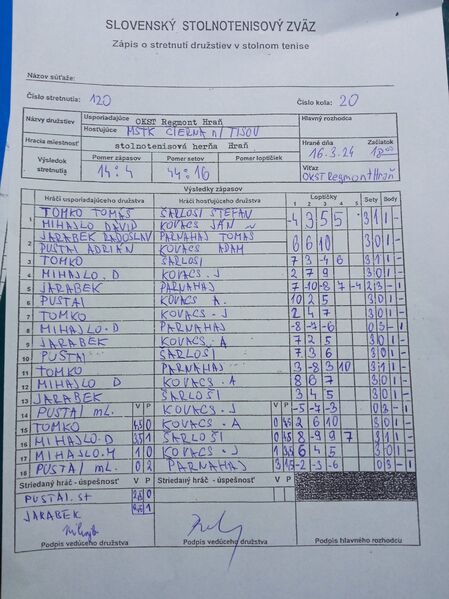 SLOVENSKÝ STOLNOTENISOVÝ ZVÄZ
Zápis o stretnutí družstiev v stolnom tenise
Názov súťaže:
Číslo stretnutia: 120 Číslo kola: 20
Názvy družstiev Usporiadajúce OKST Regmont Hraň Hlavný rozhodca
Hosťujúce MSTK ČIERNA n/TISOU
Hracia miestnosť stolnotenisová herňa Hraň Hrané dňa Začiatok
16.3.24
Výsledok stretnutia Pomer zápasov Pomer setov Pomer loptičiek Víťaz
14:4 44:16 OKST Regmont Hraň
Výsledky zápasov
Hráči usporiadajúceho družstva Hráči hosťujúceho družstva Loptičky Sety Body
1 2 3 4 5
1 TOMKO TOMÁŠ ŠARLOSI ŠTEFAN -4 3 5 5 3 1 1 -
MIHAJLO DÁVID KOVACS JÁN
2 JARABEK RADOSLAV PARNAHAJ TOMAS 6 6 10 3 0 1 -
PUSTAI ADRIÁN KOVACS ADAM
3 TOMKO ŠARLOSI 7 3 -4 6 3 1 1 -
4 MIHAJLO.D KOVACS.J 2 7 9 3 0 1 -
5 JARABEK PARNAHAJ 7 -10 -8 7 -4 2 3 - 1
6 PUSTAI KOVACS A. 10 2 5 3 0 1 -
7 TOMKO KOVACS.J 2 4 7 3 0 1 -
8 MIHAJLO.D PARNAHAJ -8 -7 -6 0 3 - 1
9 JARABEK KOVACS.A 7 2 5 3 0 1 -
10 PUSTAI ŠARLOSI 7 3 6 3 0 1 -
11 TOMKO PARNAHAJ 3 -8 3 10 3 1 1 -
12 MIHAJLO D KOVACS.A 8 6 7 3 0 1 -
13 JARABEK ŠARLOSI 3 4 5 3 0 1 -
14 PUSTAI ml. V P KOVACS.J V P -5 -7 -3 0 3 - 1
15 TOMKO KOVACS.A 2 6 10 3 0 1 -
16 MIHAJLO.D ŠARLOSI 8 -9 9 7 3 1 1 -
17 MIHAJLO.M KOVACS.J 6 4 5 3 0 1 -
18 PUSTAI ml. 0 2 PARNAHAJ -2 -3 -6 0 3 - 1
Striedaný hráč - úspešnosť V P Striedaný hráč - úspešnosť V P
PUSTAI.st
JARABEK
Podpis vedúceho družstva Podpis vedúceho družstva Podpis hlavného rozhodcu